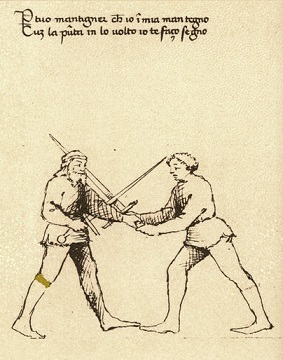 P tuo mantigner ch̄ io ī mia man tegno
Cuȝ la pūta in lo volto io te faço segno